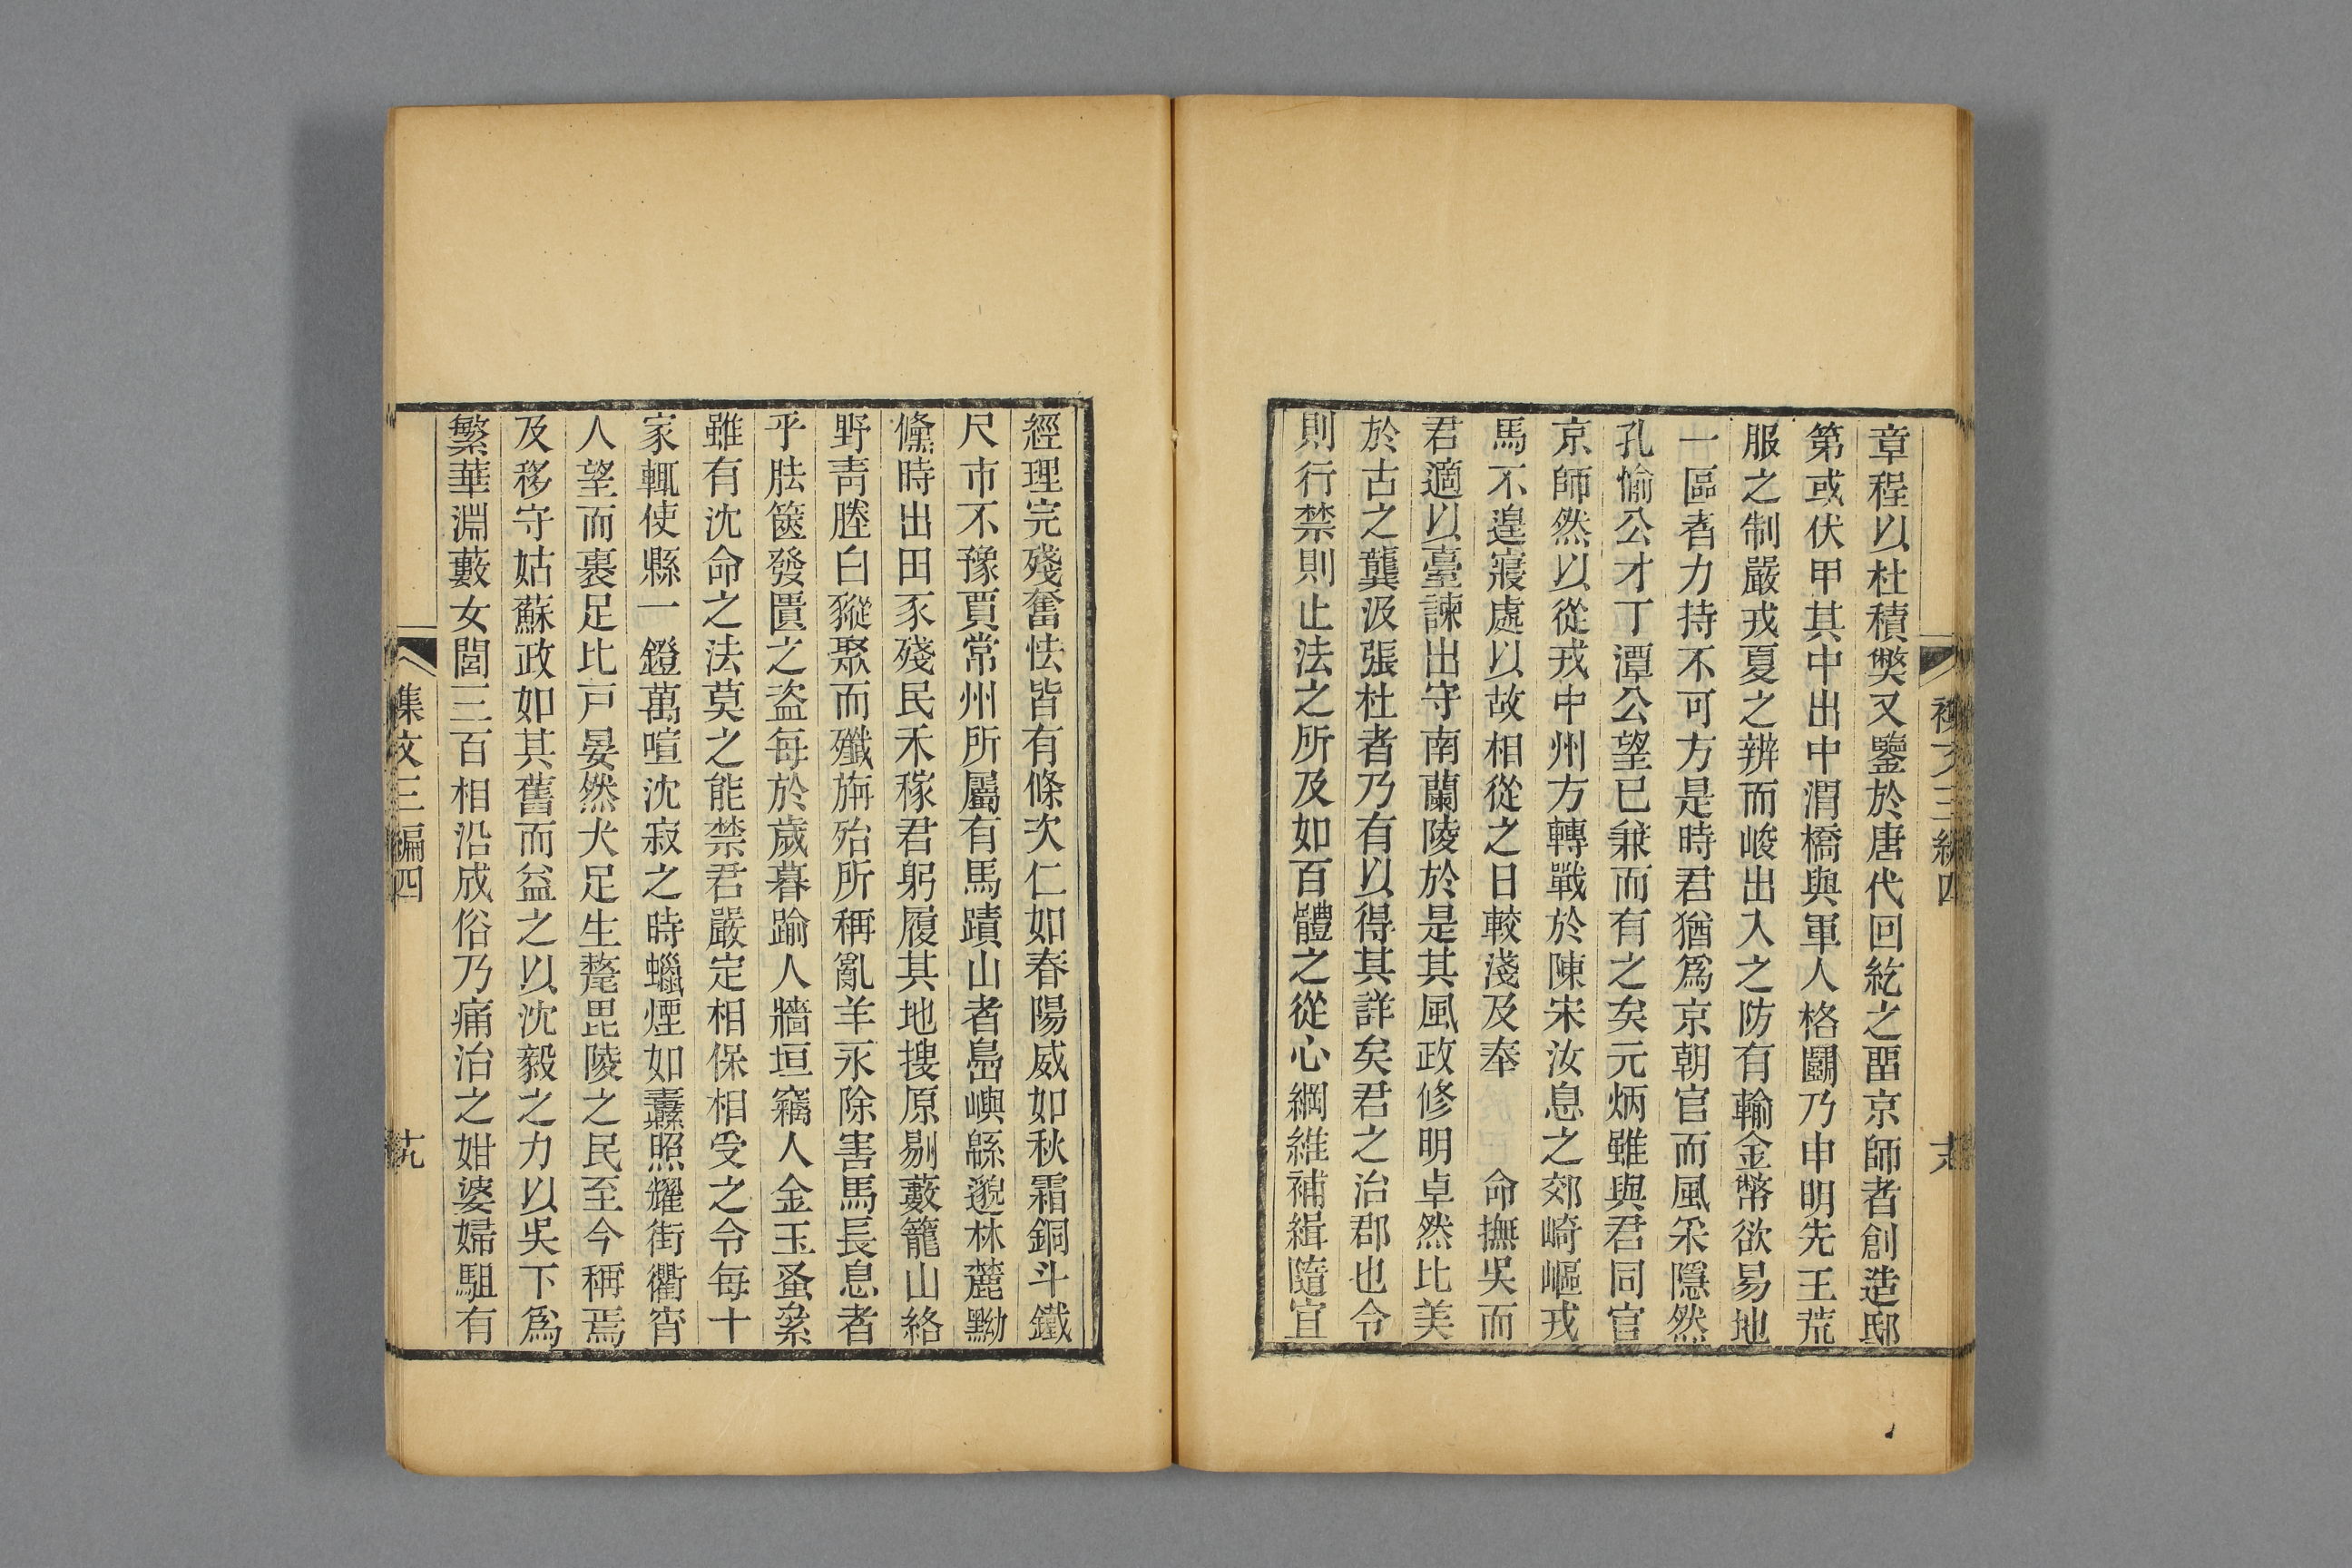 章程以杜積獘又鑒於唐代回紇之畱京師者創造邸
第或伏甲其中出中渭橋與軍人格鬭乃申明先王荒
服之制嚴戎夏之辨而峻出入之防有輸金幣欲易地
一區者力持不可方是時君猶爲京朝官而風采隱然
孔愉公才丁潭公望已兼而有之矣元炳雖與君同官
京師然以從戎中州方轉戰於陳宋汝息之郊崎嶇戎
馬不遑寢處以故相從之日較淺及奉 命撫吳而
君適以臺諫出守南蘭陵於是其風政修明卓然比美
於古之龔汲張杜者乃有以得其詳矣君之治郡也令
則行禁則止法之所及如百體之從心綱維補緝隨宜
文三編四
經理完殘奮怯皆有條次仁如春陽威如秋霜銅斗鐵
尺市不豫賈常州所屬有馬蹟山者島嶼緜邈林麓黝
儵時出田豕殘民禾稼君躬履其地搜原剔藪籠山絡
野靑塍白豵聚而殲旃殆所稱亂羊永除害馬長息者
乎胠篋發匱之盜每於歲暮踰人牆垣竊人金玉蚤絫
雖有沈命之法莫之能禁君嚴定相保相受之令每十
家輒使縣一鐙萬喧沈寂之時蠟煙如纛照耀街衢宵
人望而裹足比戶晏然犬足生氂毘陵之民至今稱焉
及移守姑蘇政如其舊而益之以沈毅之力以吳下爲
繁華淵藪女閭三百相沿成俗乃痛治之姏婆婦駔有
集文三編四 十九